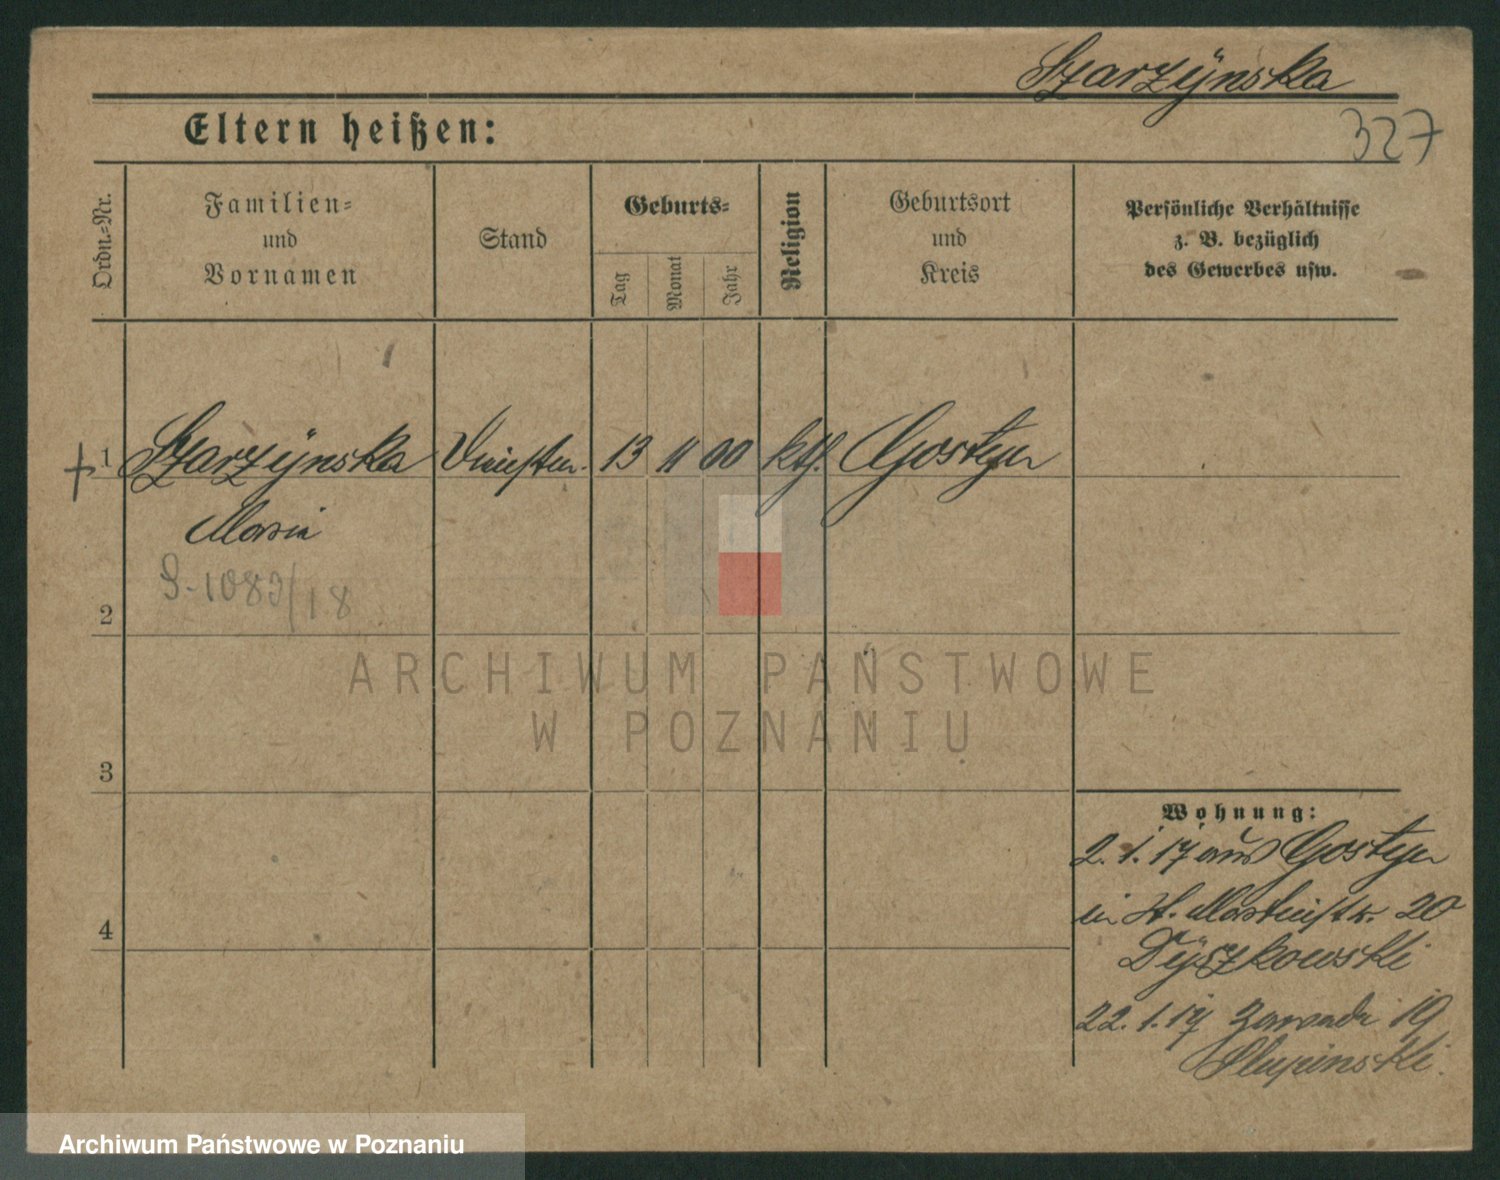 Szarzÿnska
Eltern heißen:
327
Ordn.-Nr.
Familien-
und
Vornamen
Stand
Geburts-
Tag
Monat
Jahr
Religion
Geburtsort
und
Kreis
Persönliche Verhältnisse
z. B. bezüglich
des Gewerbes usw.
+ 1 Szarzÿnska 13 11 00 kth. Gostyn
Maria
S-1083/18
2
ARCHIWUM PAŃSTWOWE
W POZNANIU
3
Wohnung:
2.1.17 aus Gostyn
in St. Martinstr. 20
Dÿszkowski
4
22.1.17 Zawade 19
Slupinski.
Archiwum Państwowe w Poznaniu